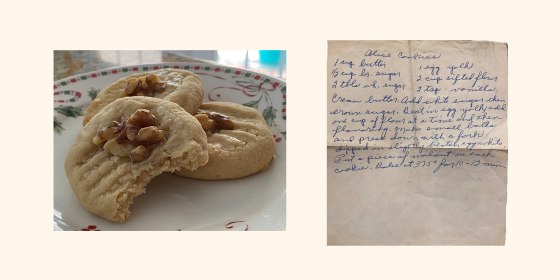 Alice Cookies
1 cup butter 1 egg yolk
½ cup br. sugar 2 cup sifted flour
2 tbls wh. sugar 2 tsp. vanilla
Cream butter. Add white sugar then
brown sugar. Beat in egg yolk, add
one cup of flour at a time and then
flavoring. Make small balls
and press down with a fork
dipped in slightly beaten egg white
Put a piece of walnut on each
cookie. Bake at 375° for 10-12 min.